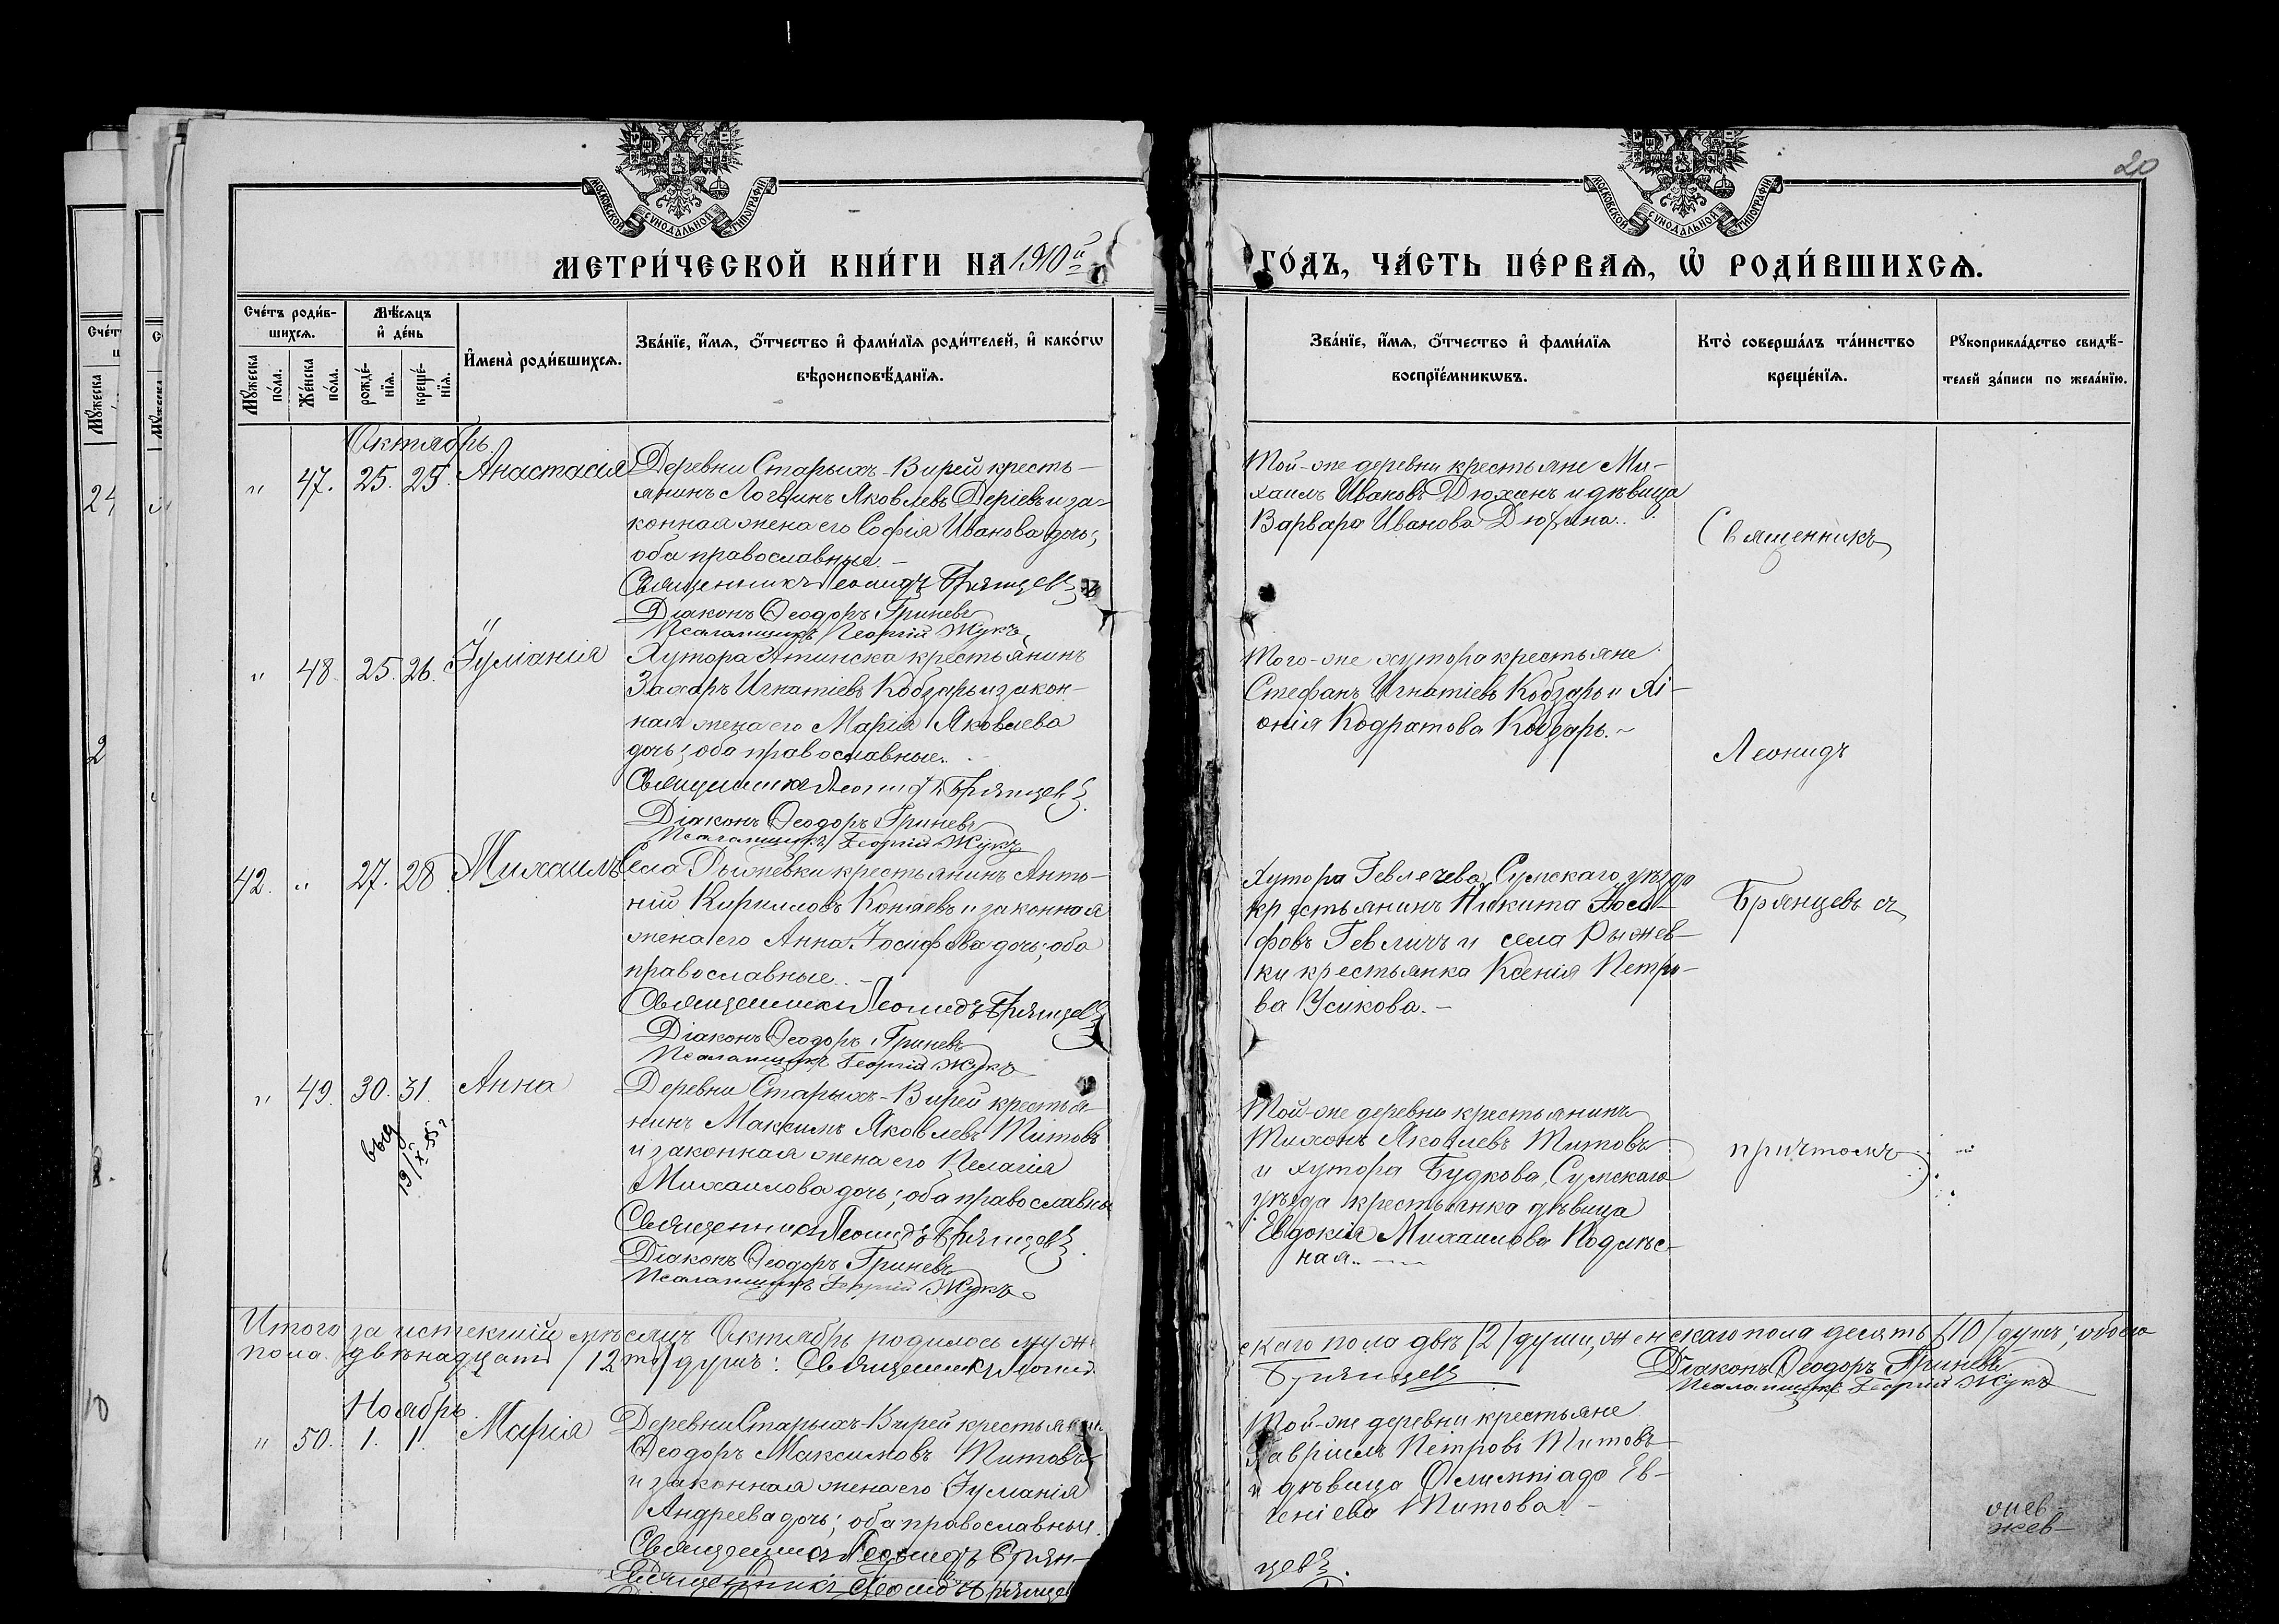 20
МОСКОВСКОЙ СУНОДАЛЬНОЙ ТИПОГРАФІИ
МОСКОВСКОЙ СУНОДАЛЬНОЙ ТИПОГРАФІИ
МЕТРИ́ЧЕСКОЙ КНИ́ГИ НА 1910й
ГО́ДЪ, ЧА́СТЬ ПЕ́РВАѦ, Ѡ҆ РОДИ́ВШИХСѦ.
Сче́тъ роди́в-
шихсѧ.
Мꙋ́жеска по́ла.
Же́нска по́ла.
Мѣ́сѧцъ
и҆ де́нь
рожде́-
нїѧ.
креще́-
нїѧ.
И҆мена̀ роди́вшихсѧ.
Зва́нїе, и҆́мѧ, ѻ҆́тчество и҆ фами́лїѧ роди́телей, и҆ како́гѡ
вѣроисповѣ́данїѧ.
Зва́нїе, и҆́мѧ, ѻ҆́тчество и҆ фами́лїѧ
воспрїе́мникѡвъ.
Кто̀ соверша́лъ та́инство
креще́нїѧ.
Рꙋкоприкла́дство свидѣ́-
телей за́писи по жела́нїю.
Октябрь
" 47. 25. 25. Анастасія
Деревни Старыхъ-Вирей кресть-
янинъ Логвинъ Яковлевъ Деріевъ и за-
конная жена его Софія Иванова дочь;
оба православные.-
Священникъ Леонидъ Брянцевъ
Діаконъ Ѳеодоръ Гриневъ
Псаломщикъ Георгій Жукъ
Той-же деревни крестьяне Ми-
хаилъ Ивановъ Дюхинъ и дѣвица
Варвара Иванова Дюхина..
Священникъ
" 48. 25. 26. Іуліанія
Хутора Атинска крестьянинъ
Захаръ Игнатіевъ Кобзарь и закон-
ная жена его Марія Яковлева
дочь; оба православные..
Священникъ Леонидъ Брянцевъ
Діаконъ Ѳеодоръ Гриневъ
Псаломщикъ Георгій Жукъ
Того-же хутора крестьяне
Стефанъ Игнатіевъ Кобзарь и Хі-
онія Кодратова Кобзарь.~
Леонидъ
42. " 27. 28. Михаилъ
Села Рыжевки крестьянинъ Анто-
ній Кирилловъ Коняевъ и законная
жена его Анна Іосифова дочь; оба
православные..-
Священникъ Леонидъ Брянцевъ
Діаконъ Ѳеодоръ Гриневъ
Псаломщикъ Георгій Жукъ
Хутора Гевлечева, Сумскаго уѣзда
крестьянинъ Никита Іоси-
фовъ Гевличъ и села Рыжев-
ки крестьянка Ксенія Петро-
ва Усикова.-
Брянцевъ съ
" 49. 30. 31. Анна
выд
19/X-55г
Деревни Старыхъ-Вирей крестья-
нинъ Максимъ Яковлевъ Титовъ
и законная жена его Пелагія
Михаилова дочь; оба православные
Священникъ Леонидъ Брянцевъ
Діаконъ Ѳеодоръ Гриневъ
Псаломщикъ Георгій Жукъ
Той-же деревни крестьянинъ
Тихонъ Яковлевъ Титовъ
и хутора Будкова, Сумскаго
уѣзда крестьянка дѣвица
Евдокія Михаилова Подлѣс-
ная..
причтомъ
Итого за истекшій мѣсяцъ Октябрь родилось муж
скаго пола двѣ /2/ души, женскаго пола десять /10/ душъ; обоего
пола двѣнадцать /12ть/ душъ: Священникъ Леонид
Брянцевъ
Діаконъ Ѳеодоръ Гриневъ
Псаломщикъ Георгій Жукъ
Ноябрь
" 50. 1. 1. Марія
Деревни Старыхъ-Вирей крестьянин
Ѳеодоръ Максимовъ Титовъ
и законная жена его Іуліанія
Андреева дочь; оба православные.
Священникъ Леонидъ Брян-
цевъ.
Той-же деревни крестьяне
Гавріилъ Петровъ Титовъ
и дѣвица Олимпіада Ев-
геніева Титова.-